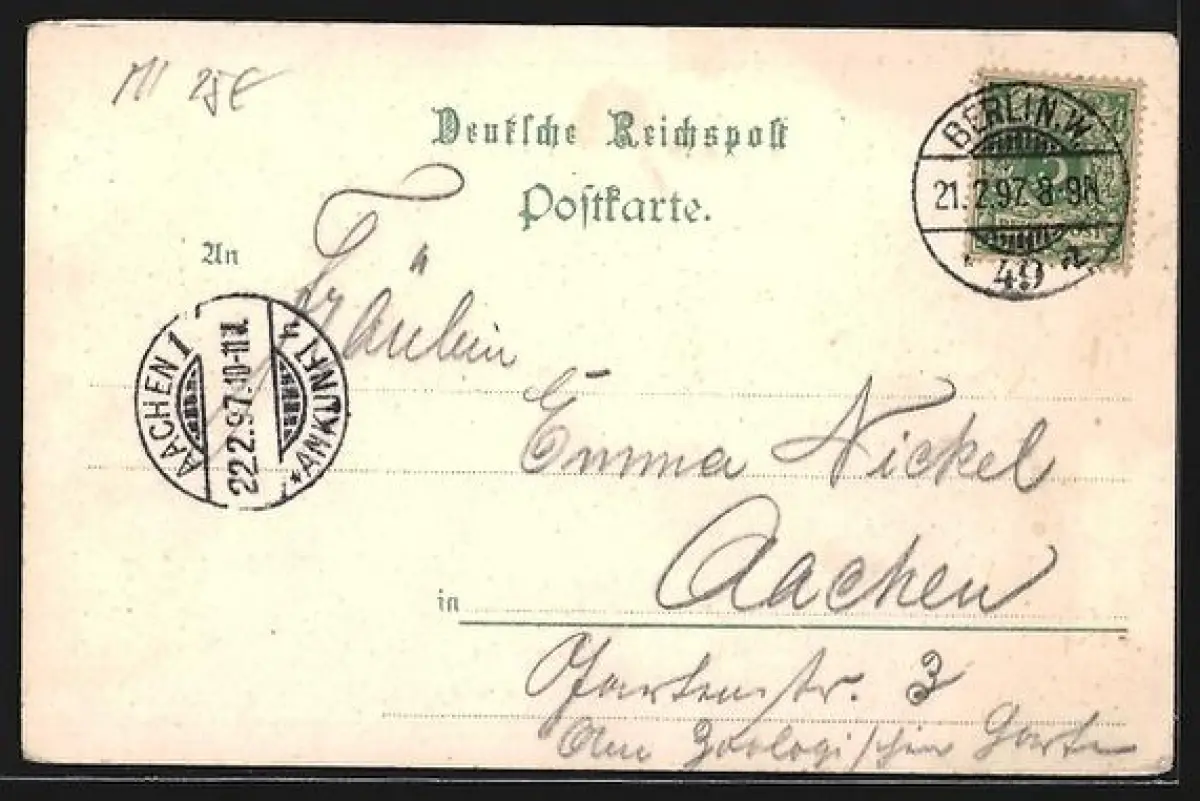 25€
Deutsche Reichspost
Postkarte.
An
Fräulein
Emma Nickel
in Aachen
Gartenstr. 3
Am Zoologischen Garten
BERLIN.W.
21.2.97. 8-9N.
49 a
AACHEN 1
22.2.97. 10-11V.
*ANKUNFT h
5